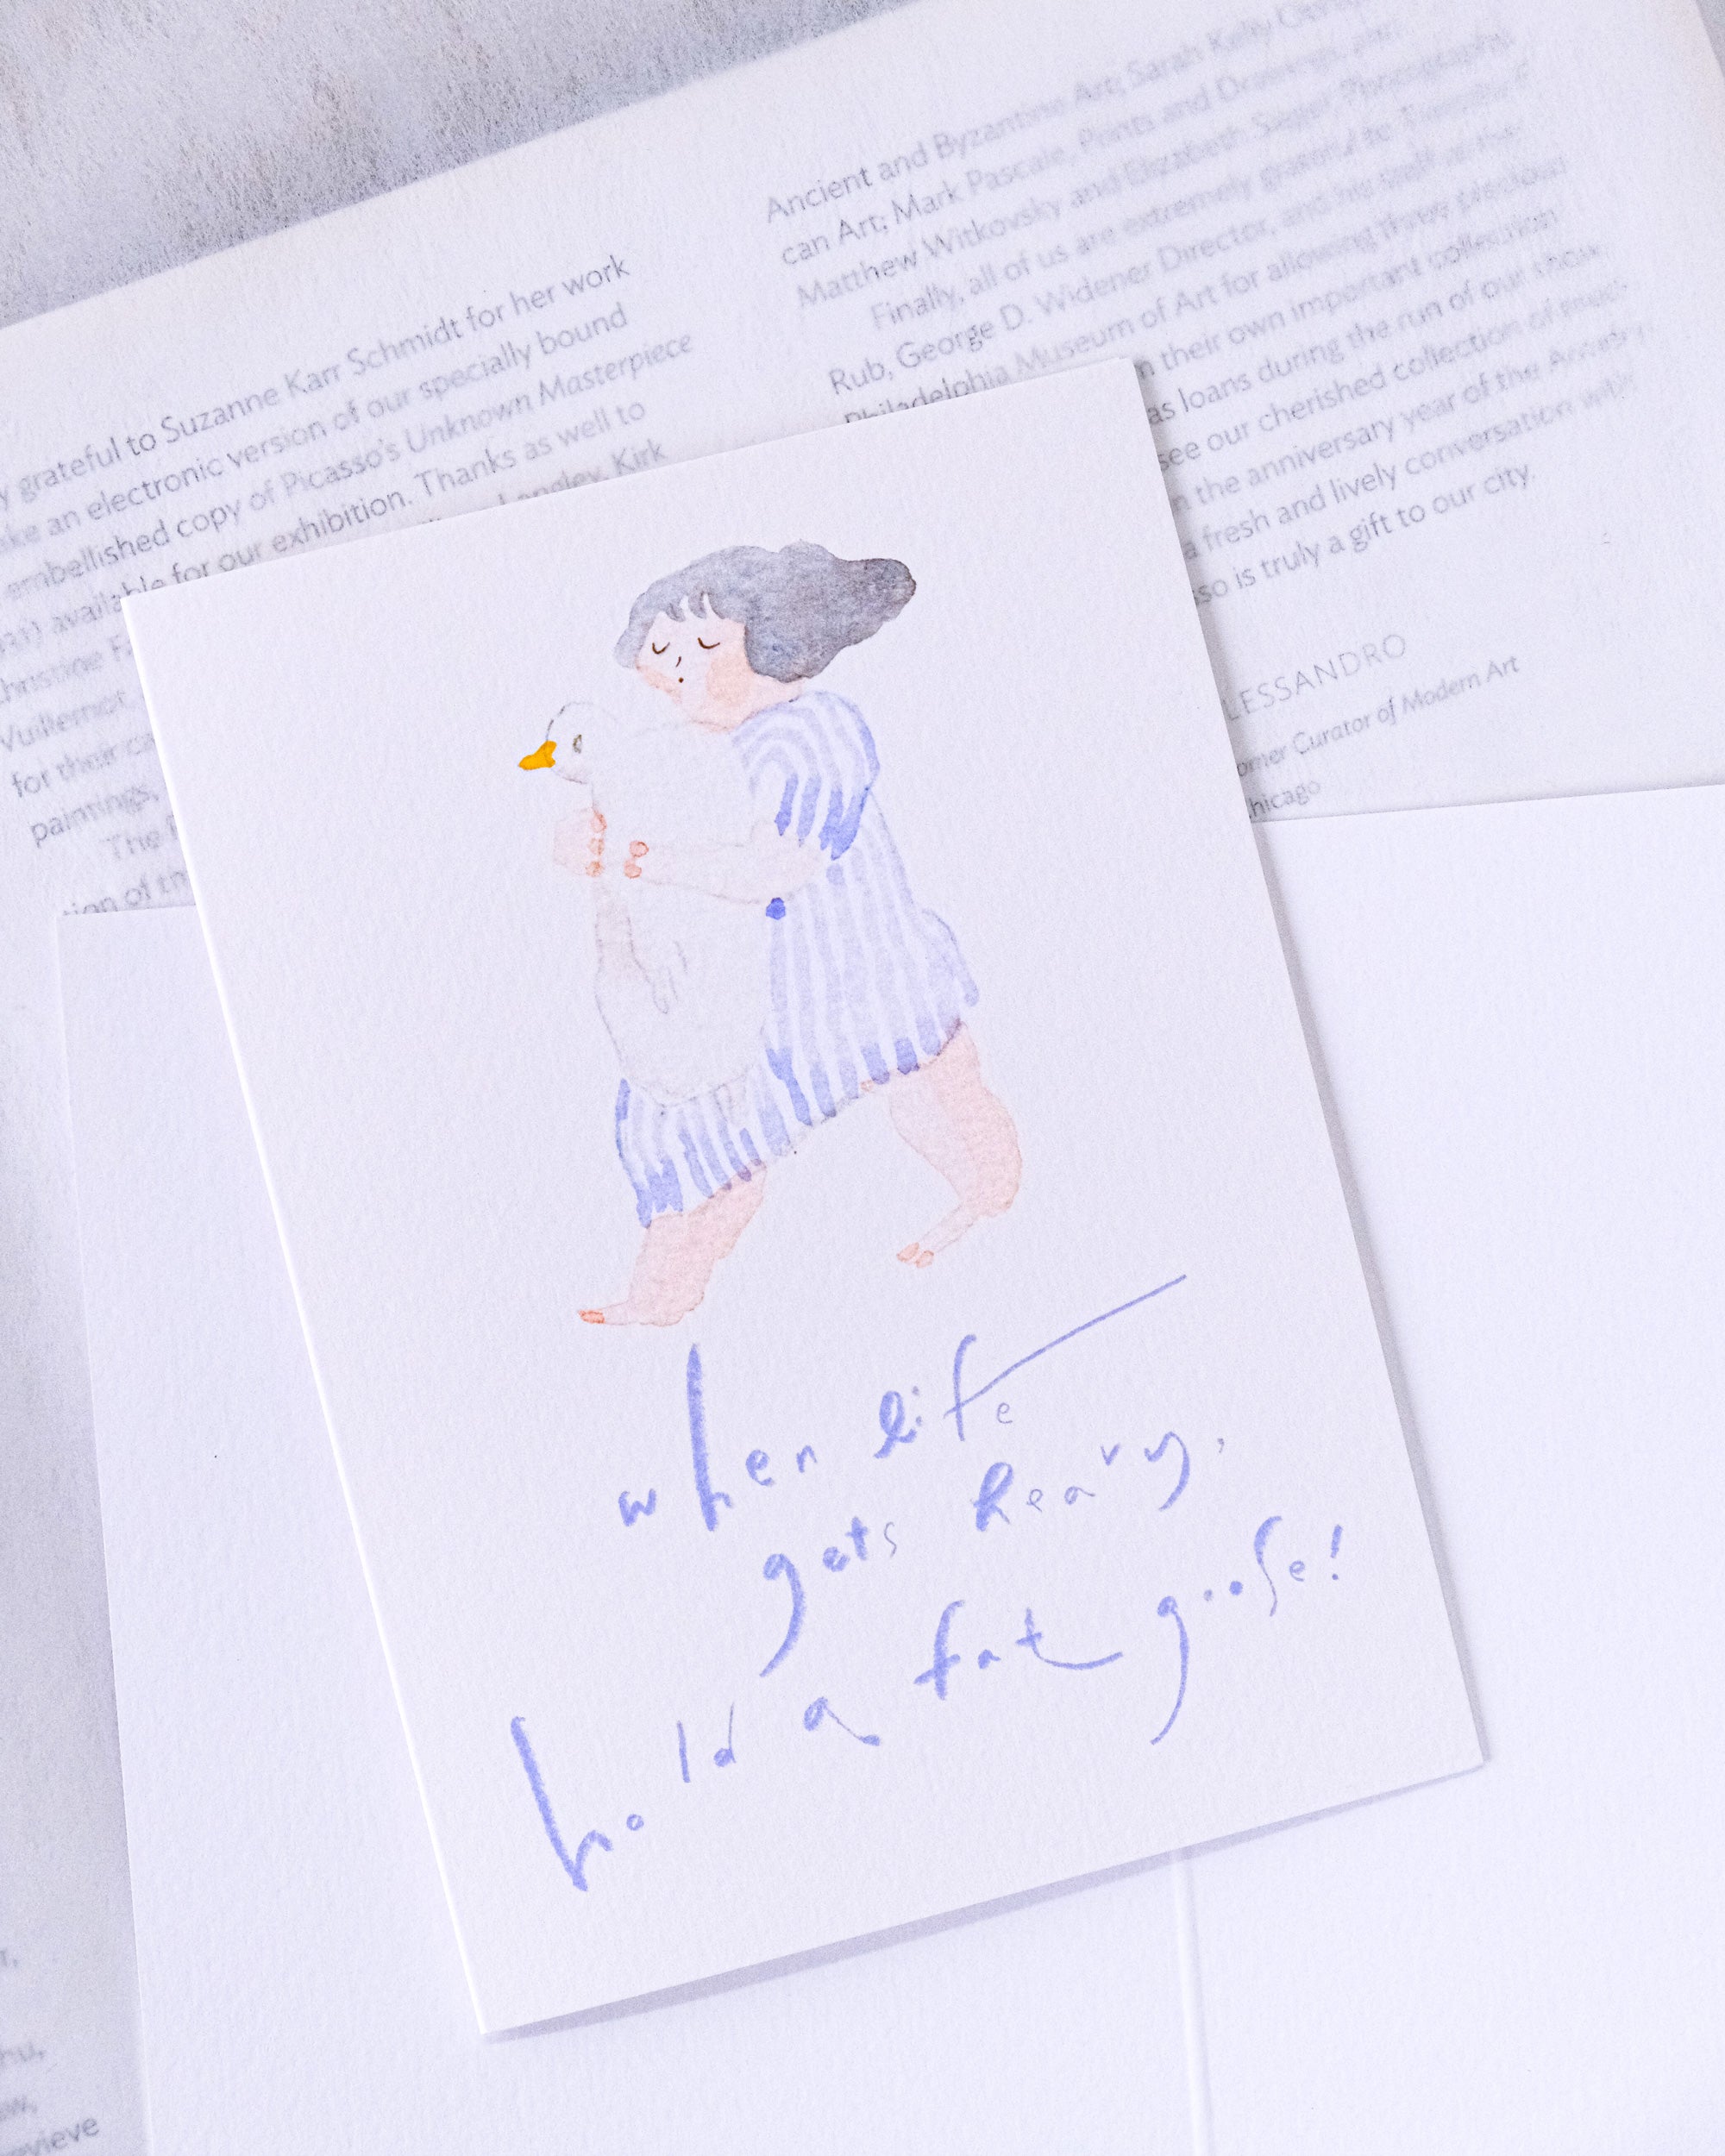 y grateful to Suzanne Karr Schmidt for her work
ke an electronic version of our specially bound
embellished copy of Picasso's Unknown Masterpiece
available for our exhibition. Thanks as well to
Langley, Kirk
Christine
Vuillemot,
for their
paintings,
The
tion of
Ancient and Byzantine Art; Sarah Kelly
can Art; Mark Pascale, Prints and Drawings; and
Matthew Witkovsky and Elizabeth Siegel, Photography.
Finally, all of us are extremely grateful to Timothy
Rub, George D. Widener Director, and his staff at the
Philadelphia Museum of Art for allowing three precious
their own important collection
as loans during the run of our show
see our cherished collection of
the anniversary year of the Armory
a fresh and lively conversation with
sso is truly a gift to our city.
LESSANDRO
omer Curator of Modern Art
hicago
when life
gets heavy,
hold a fat goose!
evieve